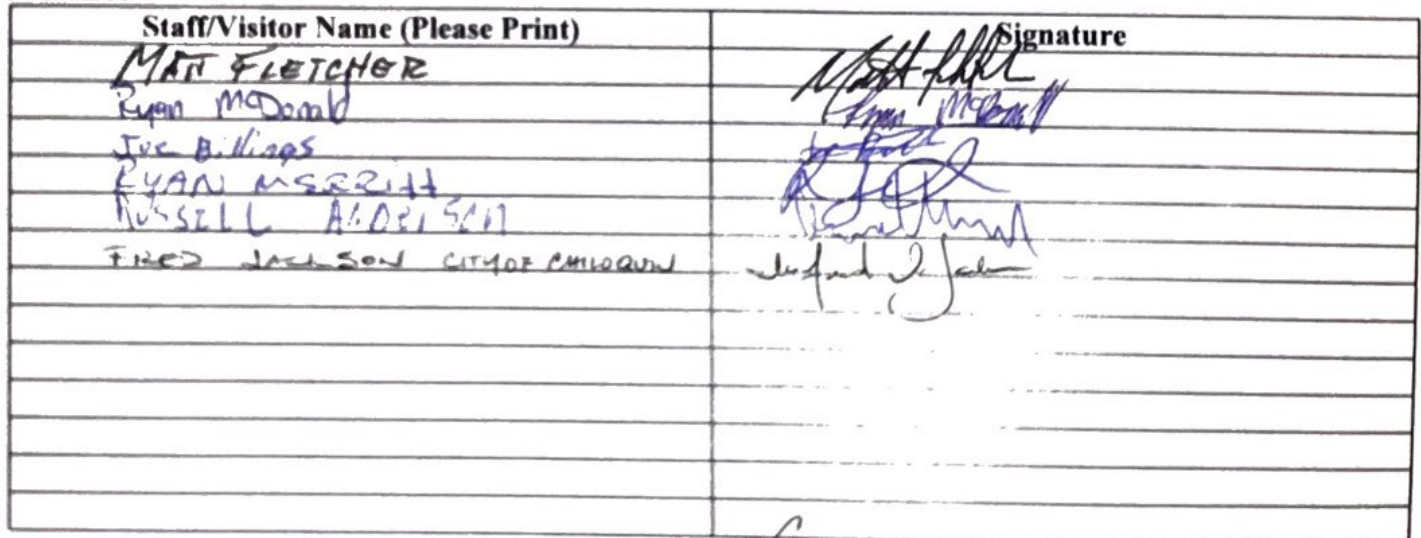 Staff/Visitor Name (Please Print) Signature
MATT FLETCHER
Ryan McDonald Ryan McDonald
Joe Billings
RYAN MERRITT
RUSSELL ANDERSON
FRED JACKSON CITY OF CHILOQUIN